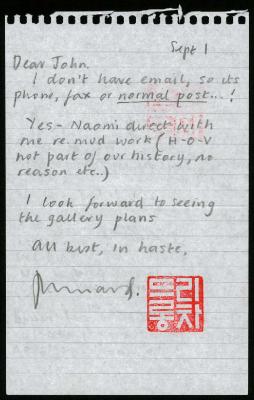 Sept 1
Dear John.
I don't have email, so its
phone, fax or normal post...!
Yes - Naomi direct with
me re. mud work (H-O-V
not part of our history, no
reason etc..)
I look forward to seeing
the gallery plans
All best, in haste,